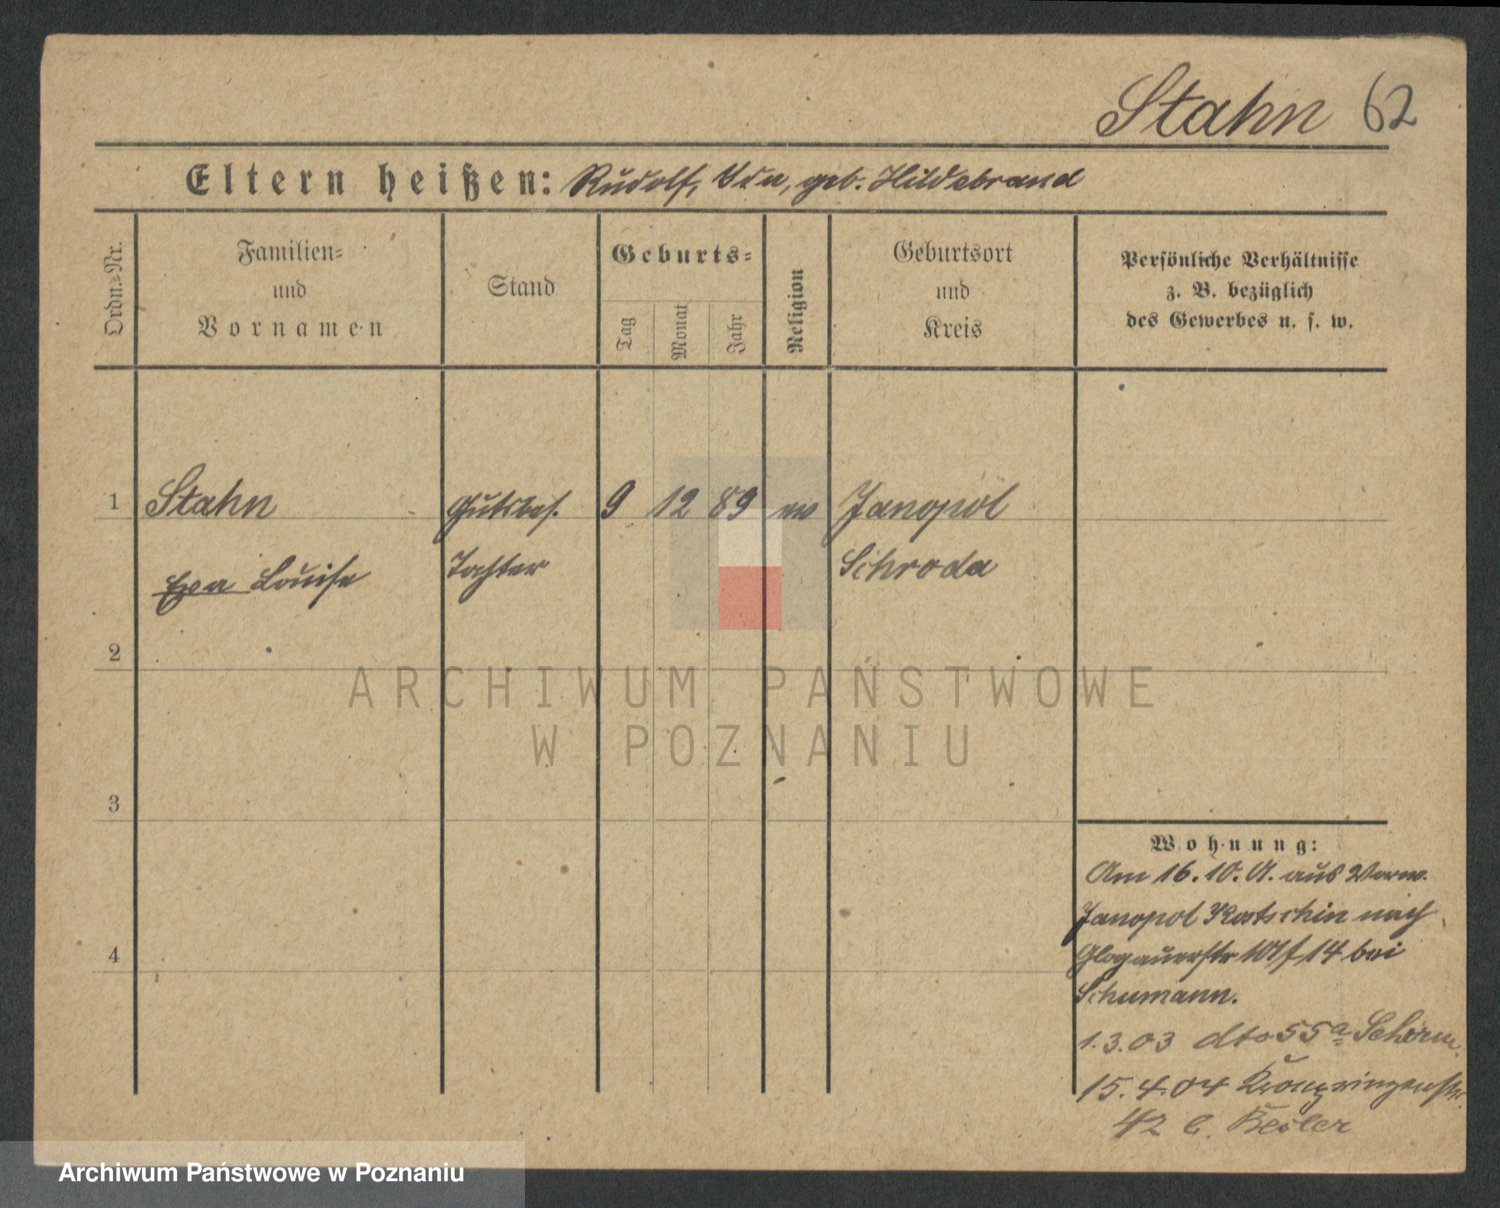 Stahn 62
Eltern heißen: Rudolf, Ida, geb. Hildebrand
Ordn.-Nr.
Familien-
und
Vornamen
Stand
Geburts-
Tag
Monat
Jahr
Religion
Geburtsort
und
Kreis
Persönliche Verhältnisse
z. B. bezüglich
des Gewerbes u. s. w.
1 Stahn Gutsbes. 9 12 89 ev Janopol
Eva Louise Tochter Schroda
2
3
4
Wohnung:
Am 16.10.01. aus Vorw.
Janopol Kostschin nach
Glogauerstr 107/14 bei
Schumann.
1.3.03 dto 55a Schirm.
15.4.04 Kronprinzenstr.
42 b.
ARCHIWUM PAŃSTWOWE
W POZNANIU
Archiwum Państwowe w Poznaniu